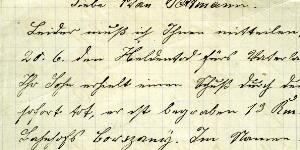 Liebe Frau
Leider muß ich Ihnen mitteilen,
20. 6. den Heldentod fürs Vaterla
Ihr Sohn erhielt einen Schuß durch de
sofort tot, er ist begraben 13 Km.
Bahnhofs Im Namen